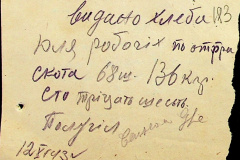 видано хлеба 183
для робочіх по отгр
скота 68ш. 136 кгр.
сто тріцать шесть.
Получіл
12/VI 43 г